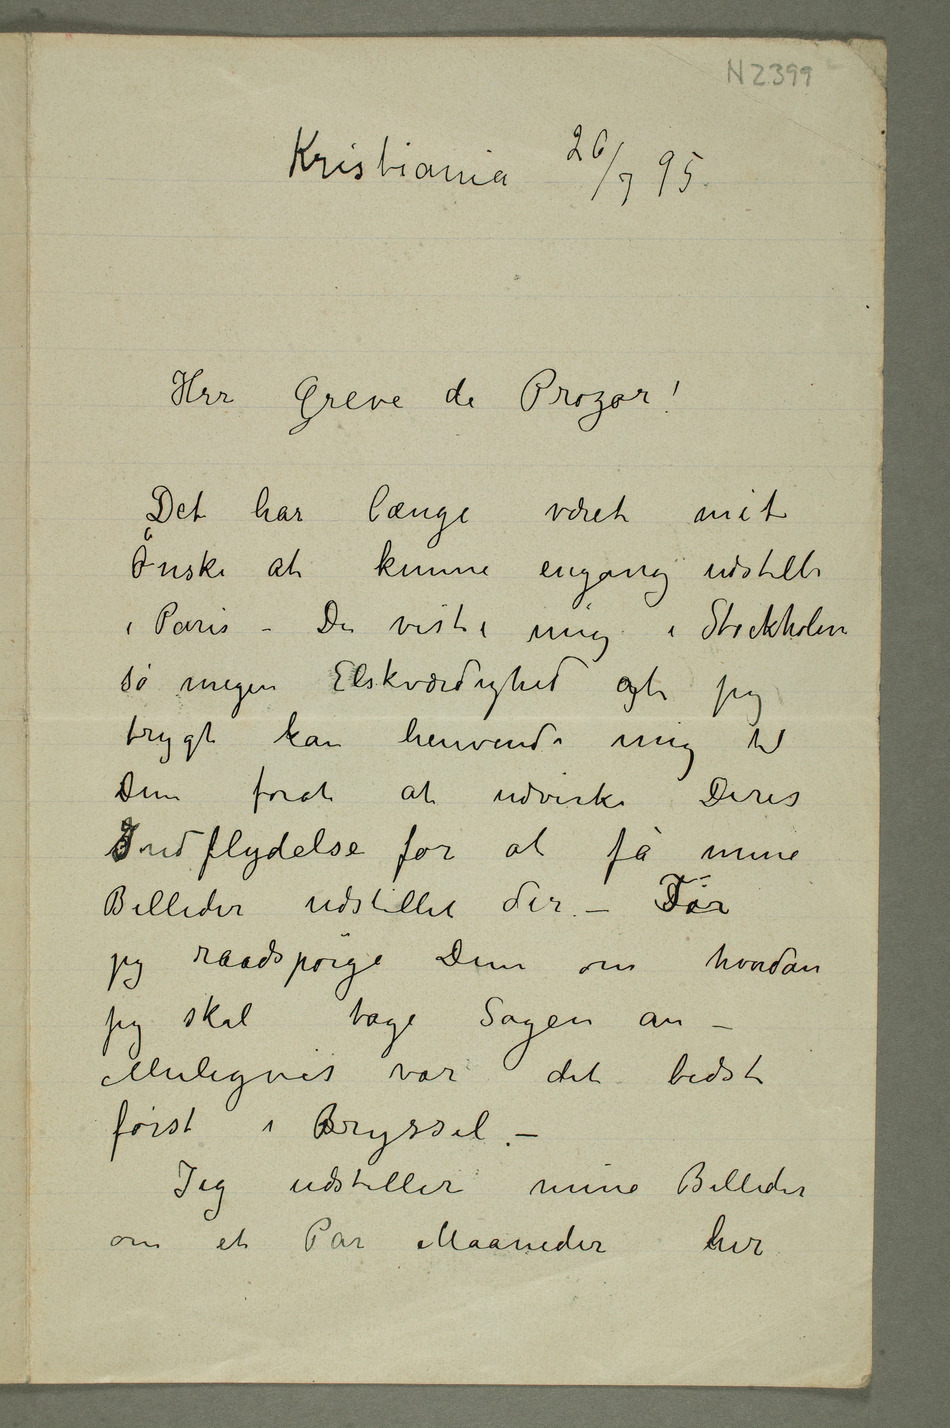 N 2399
Kristiania 26/7 95.
Herr Greve de Prozor!
Det har længe været mit
Ønske at kunne engang udstille
i Paris – De viste mig i Stockholm
så megen Elskværdighed at jeg
trygt kan henvende mig til
Dem forat at udvirke Deres
Indflydelse for at få mine
Billeder udstillet der. – Tør
jeg raadspørge Dem om hvordan
jeg skal tage Sagen an –
Muligvis var det bedst
først i Bryssel. –
Jeg udstiller mine Billeder
om et Par Maaneder her